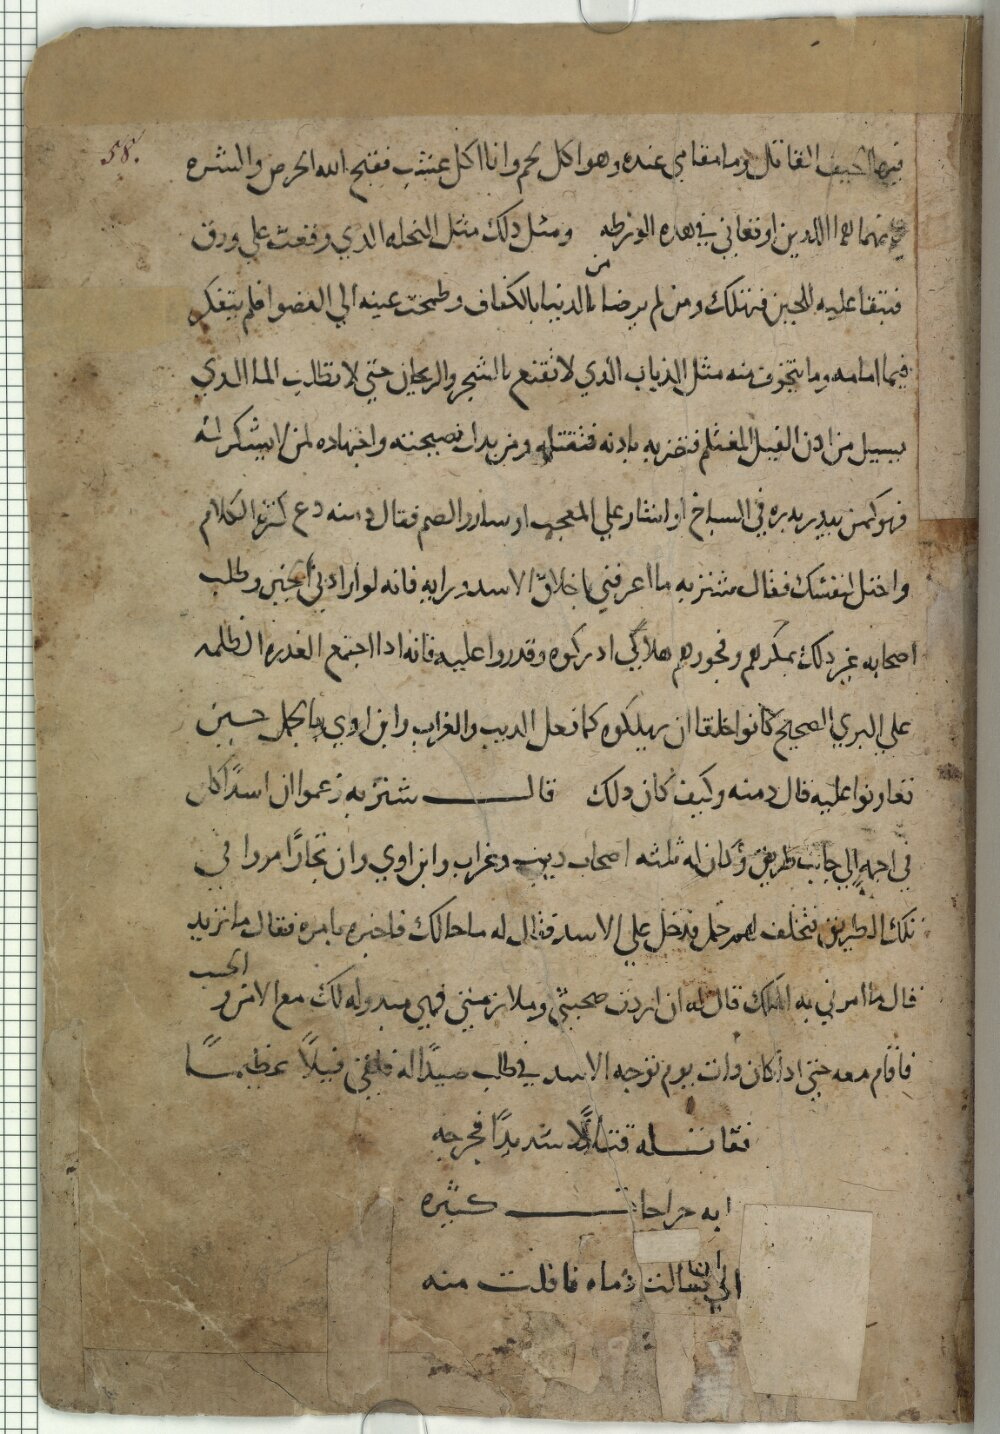 58.
فيها الحيف القاتل وما مقامي عنده وهو اكل لحم وانا اكل عشب فقبح الله الحرص والشره
فهما اللذين اوقعاني في هذه الورطه ومثل ذلك مثل النحله الذي وقعت علي ورق
فتبقا عليه للحين فتهلك ومن لم يرضا من الدنيا بالكفاف وطمحت عينه الي الفضوا فلم يتفكر
فيما امامه وما يتخوف منه مثل الذباب الذي لا تقنع بالشجر والريحان حتي لا تطالب الما الدي
يسيل من ادن الفيل المغتلم فتضربه بادنه فتقتله ومن يدل نصيحته واجتهاده لمن لا يشكر له
فهو كمن يبدر بدره في السباخ او اشار علي المعجب او سارر الصم فقال دمنه دع كثرة الكلام
واحتل لنفسك فقال شنزبه ما اعرفني باخلاق الاسد ورايه فانه لو اراد بي الخير وطلب
اصحابه غير دلك بمكرهم وفجورهم هلاكي ادركوه وقدروا عليه فانه ادا اجتمع الغدره الظلمه
علي البري الصحيح كانوا خلقا ان يهلكوه كما فعل الديب والغراب وابن اوي بالجمل حسين
تعاونوا عليه قال دمنه وكيف كان دلك قال شنزبه زعموا ان اسدًا كان
في اجمه الي جانب طريق وكان له ثلثه اصحاب ديب وغراب وابن اوي وان تجارًا مروا في
تلك الطريق فتخلف لهم جمل فدخل علي الاسد فقال له ما حالك فاخبره بامره فقال ما تزيد
الخصب
قال ما امرني به الملك قال له ان اردت صحبتي وملازمتي فهي مبدوله لك مع الامن و
فاقام معه حتي ادا كان دات يوم توجه الاسد في طلب صيدًا له فلقي فيلًا عظيمًا
فقاتله قتالًا شديدًا فجرحه
ابه جراحات كثيره
الي ان سالت دماه فافلت منه